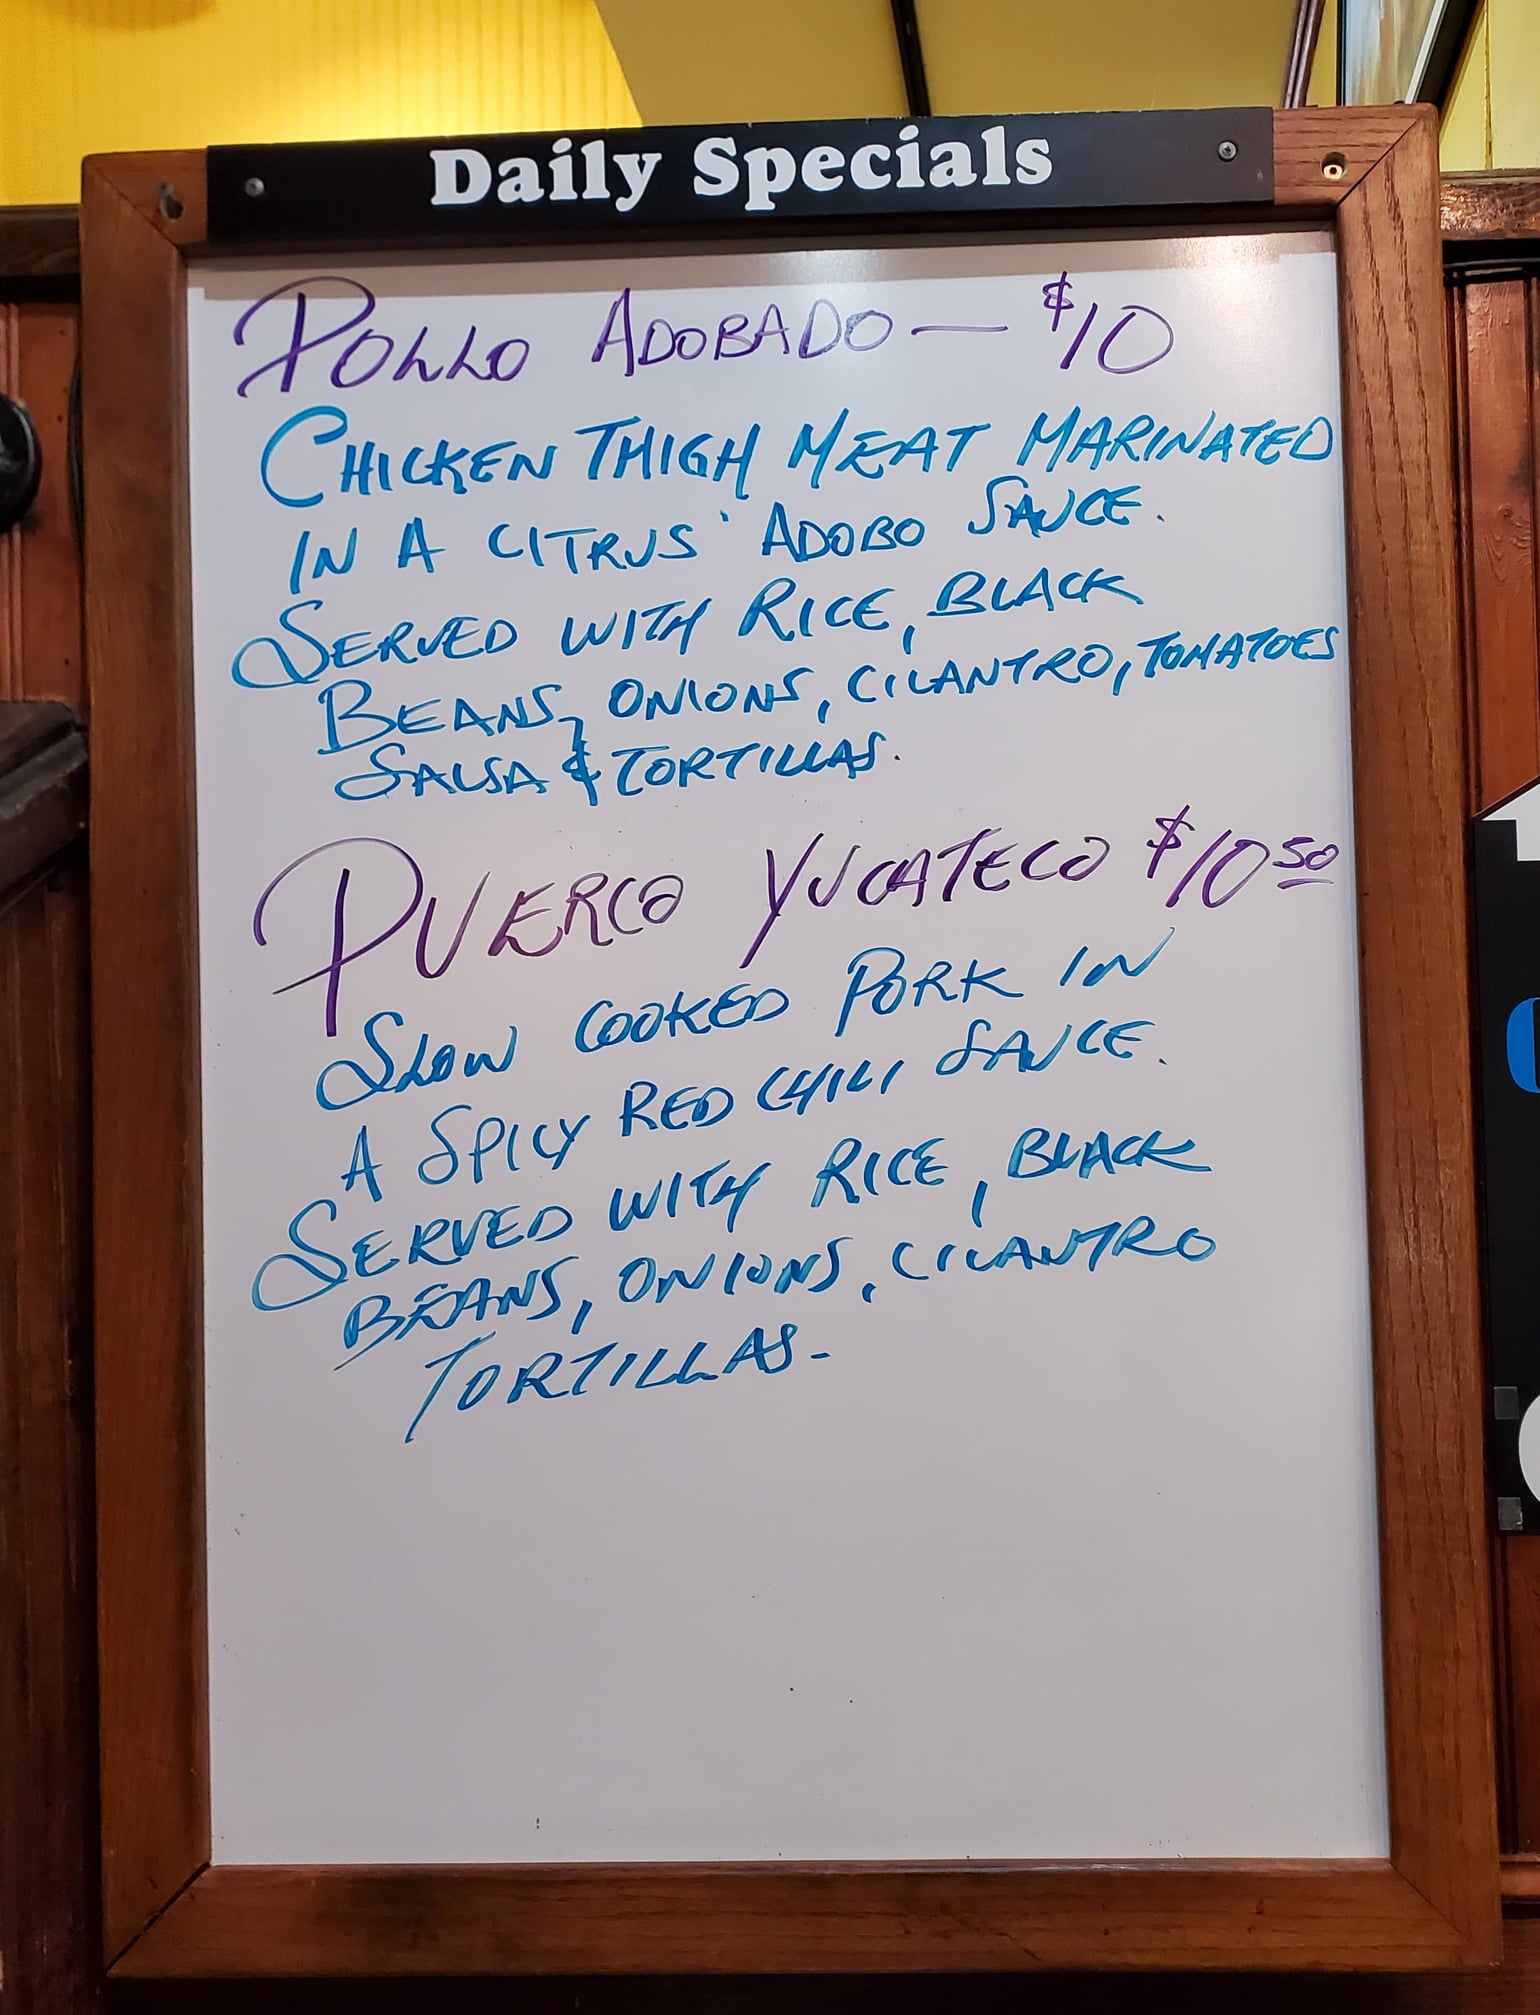 Daily Specials
POLLO ADOBADO — $10
CHICKEN THIGH MEAT MARINATED
IN A CITRUS ADOBO SAUCE.
SERVED WITH RICE, BLACK
BEANS, ONIONS, CILANTRO, TOMATOES
SALSA & TORTILLAS.
PUERCO YUCATECO $10 50
SLOW COOKED PORK IN
A SPICY RED CHILI SAUCE.
SERVED WITH RICE, BLACK
BEANS, ONIONS, CILANTRO
TORTILLAS.